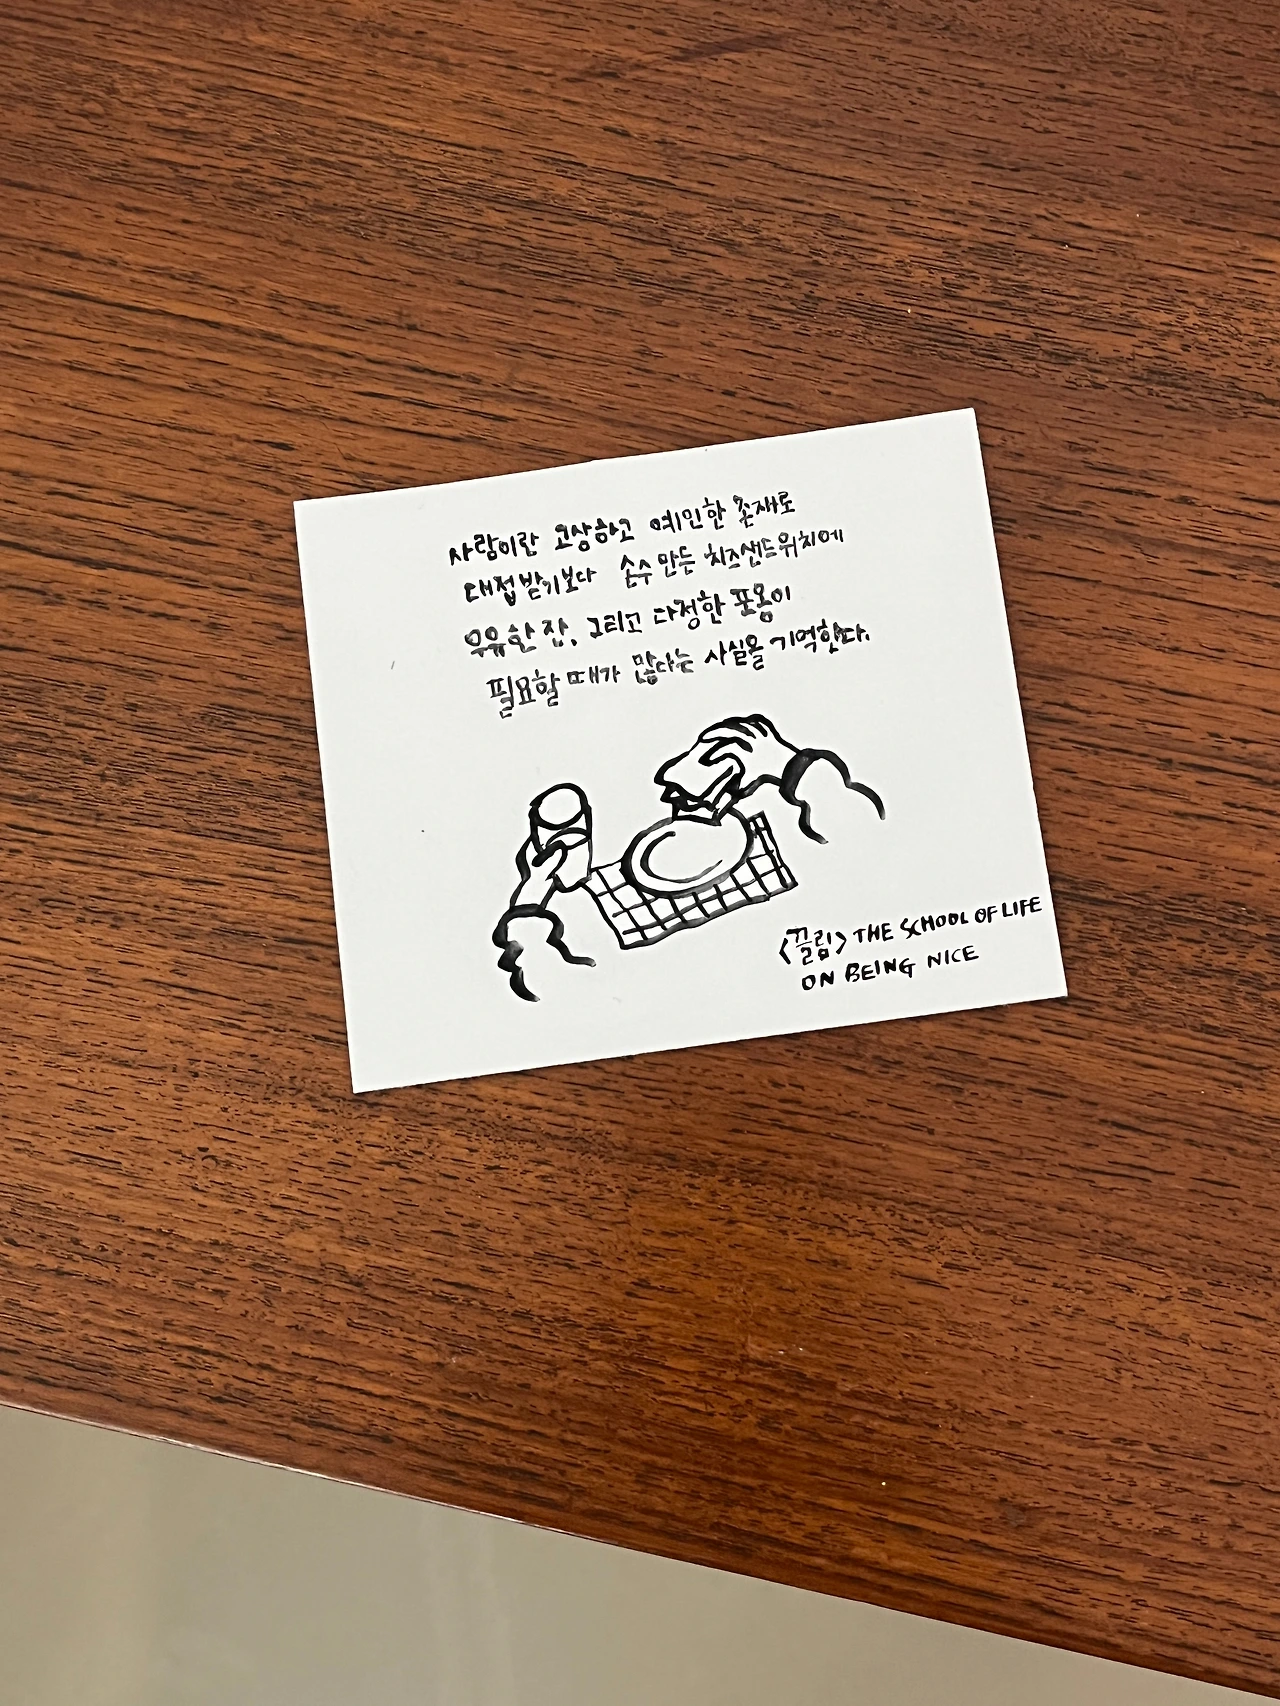 사람이란 고상하고 예민한 존재로
대접받기보다 손수 만든 치즈샌드위치에
우유 한 잔, 그리고 다정한 포옹이
필요할 때가 많다는 사실을 기억한다.
<끌림> THE SCHOOL OF LIFE
ON BEING NICE